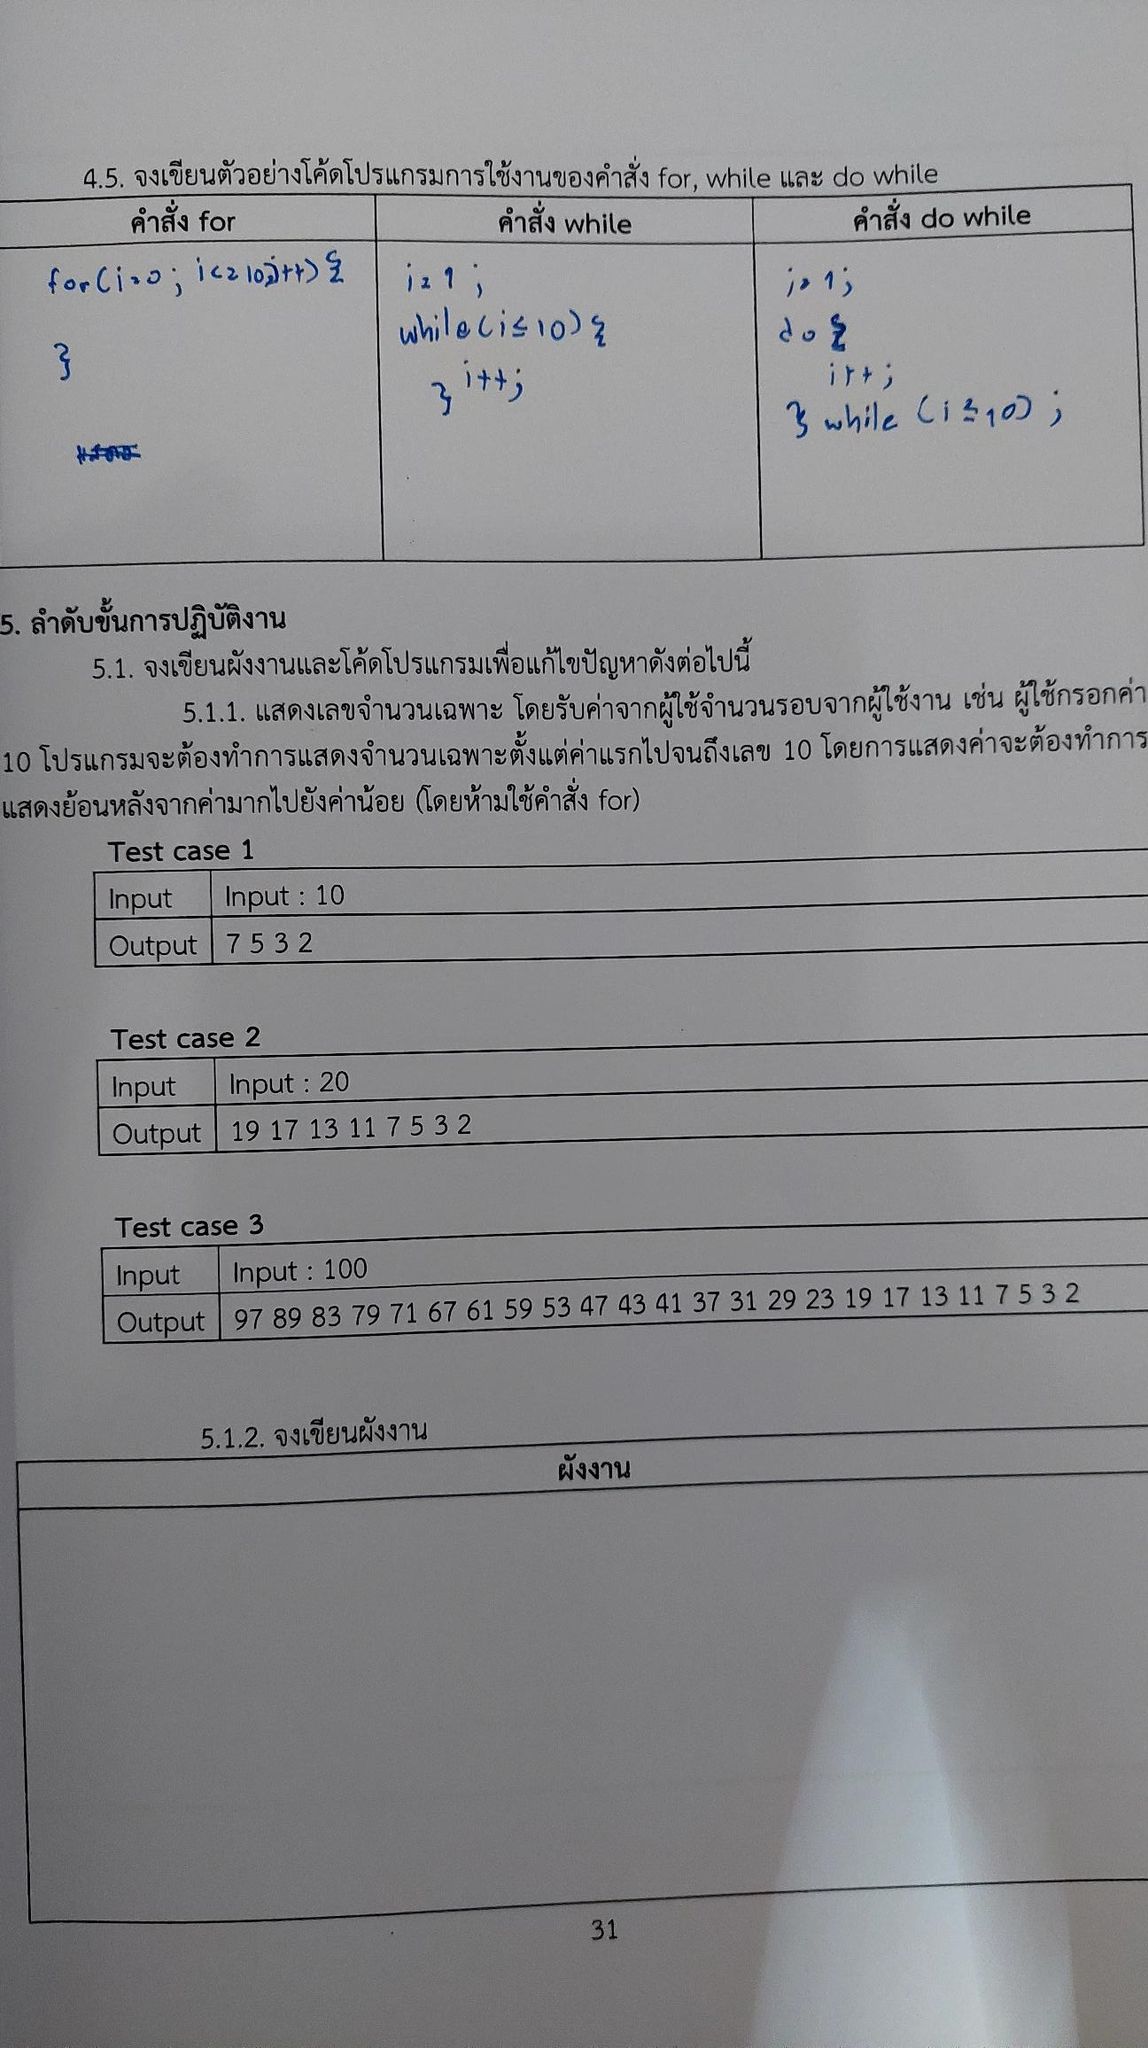 4.5. จงเขียนตัวอย่างโค้ดโปรแกรมการใช้งานของคำสั่ง for, while และ do while
คำสั่ง for
for(i=0; i<=10;i++){
}
คำสั่ง while
i=1;
while(i≤10){
i++;
}
คำสั่ง do while
i=1;
do{
i++;
} while (i≤10);
5. ลำดับขั้นการปฏิบัติงาน
5.1. จงเขียนผังงานและโค้ดโปรแกรมเพื่อแก้ไขปัญหาดังต่อไปนี้
5.1.1. แสดงเลขจำนวนเฉพาะ โดยรับค่าจากผู้ใช้จำนวนรอบจากผู้ใช้งาน เช่น ผู้ใช้กรอกค่า
10 โปรแกรมจะต้องทำการแสดงจำนวนเฉพาะตั้งแต่ค่าแรกไปจนถึงเลข 10 โดยการแสดงค่าจะต้องทำการ
แสดงย้อนหลังจากค่ามากไปยังค่าน้อย (โดยห้ามใช้คำสั่ง for)
Test case 1
Input Input : 10
Output 7 5 3 2
Test case 2
Input Input : 20
Output 19 17 13 11 7 5 3 2
Test case 3
Input Input : 100
Output 97 89 83 79 71 67 61 59 53 47 43 41 37 31 29 23 19 17 13 11 7 5 3 2
5.1.2. จงเขียนผังงาน
ผังงาน
31